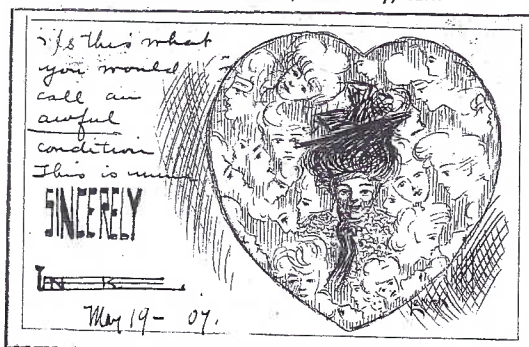 Is this what
you would
call an
awful
condition
This is mine
SINCERELY
May 19 - 07.